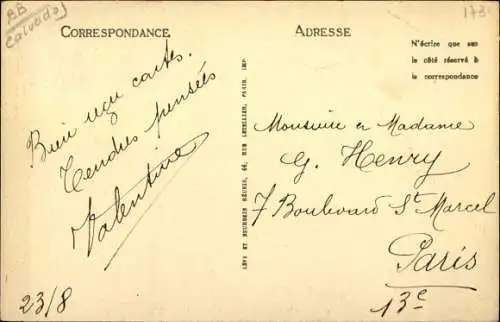 BB
Calvados
173
CORRESPONDANCE
ADRESSE
N'écrire que sur
le côté réservé à
la correspondance
Bien reçu cartes.
Tendres pensées
Valentine
23/8
LÉVY ET NEURDEIN RÉUNIS, 44, RUE LETELLIER, PARIS. IMP.
Monsieur et Madame
G. Henry
7 Boulevard St Marcel
Paris
13e